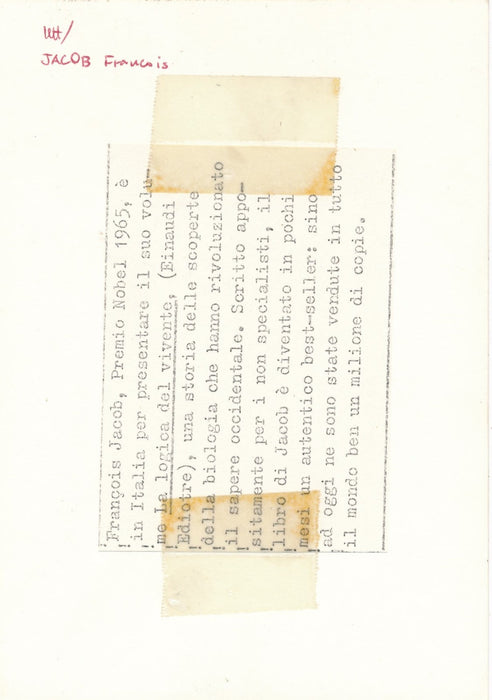 lett/
JACOB Francois
François Jacob, Premio Nobel 1965, è
in Italia per presentare il suo volu-
me La logica del vivente, (Einaudi
Ediotre), una storia delle scoperte
della biologia che hanno rivoluzionato
il sapere occidentale. Scritto appo-
sitamente per i non specialisti, il
libro di Jacob è diventato in pochi
mesi un autentico best-seller: sino
ad oggi ne sono state vendute in tutto
il mondo ben un milione di copie.